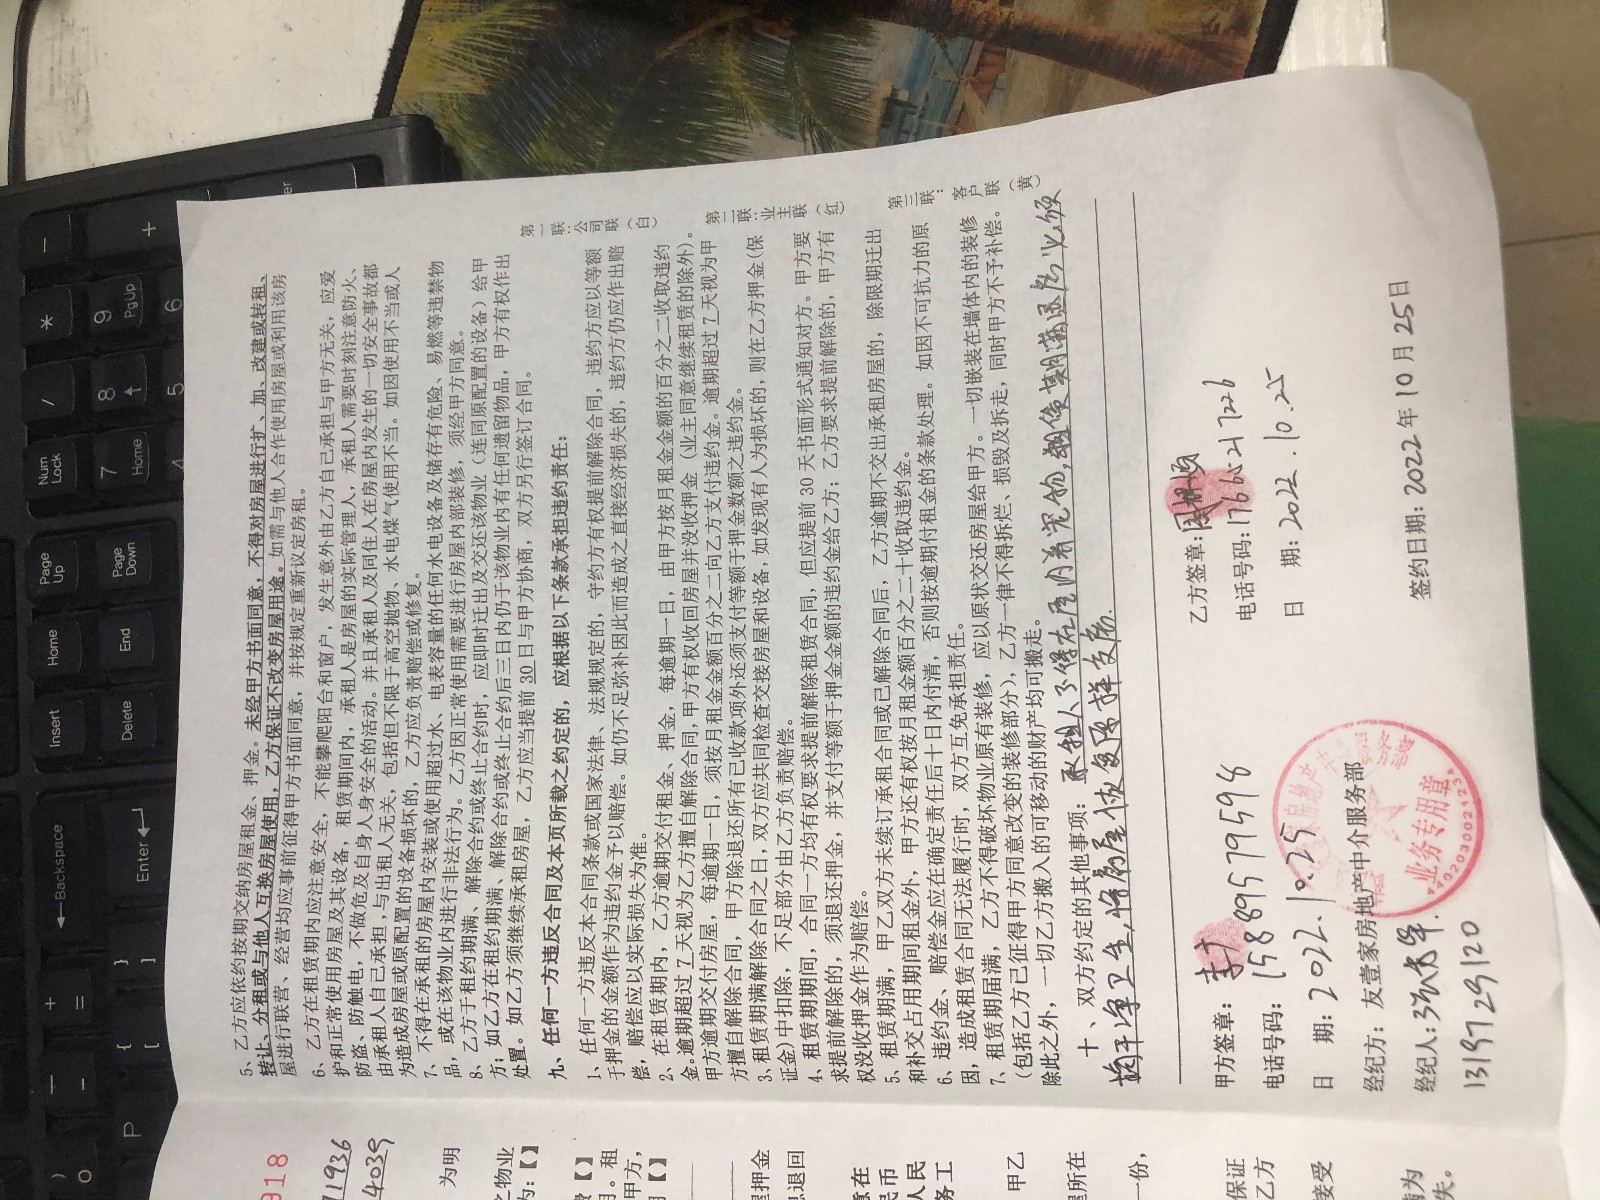 5、乙方应依约按期交纳房屋租金、押金。未经甲方书面同意，不得对房屋进行扩、加、改建或转租、
转让、分租或与他人互换房屋使用，乙方保证不改变房屋用途。如需与他人合作使用房屋或利用该房
屋进行联营、经营均应事前征得甲方书面同意，并按规定重新议定房租。
6、乙方在租赁期内应注意安全，不能攀爬阳台和窗户，发生意外由乙方自己承担与甲方无关，应爱
护和正常使用房屋及其设备，租赁期间内，承租人是房屋的实际管理人，承租人需要时刻注意防火、
防盗、防触电，不做危及自身人身安全的活动。并且承租人及同住人在房屋内发生的一切安全事故都
由承租人自己承担，与出租人无关，包括但不限于高空抛物、水电煤气使用不当。如因使用不当或人
为造成房屋或原配置的设备损坏的，乙方应负责赔偿或修复。
7、不得在承租的房屋内安装或使用超过水、电表容量的任何水电设备及储存有危险、易燃等违禁物
品，或在该物业内进行非法行为。乙方因正常使用需要进行房屋内部装修，须经甲方同意。
8、乙方于租约期满、解除合约或终止合约时，应即时迁出及交还该物业（连同原配置的设备）给甲
方；如乙方在租约期满、解除合约或终止合约后三日内仍于该物业内有任何遗留物品，甲方有权作出
处置。如乙方须继续承租房屋，乙方应当提前 30 日与甲方协商，双方另行签订合同。
九、任何一方违反合同及本页所载之约定的，应根据以下条款承担违约责任：
1、任何一方违反本合同条款或国家法律、法规规定的，守约方有权提前解除合同，违约方应以等额
于押金的金额作为违约金予以赔偿。如仍不足弥补因此而造成之直接经济损失的，违约方仍应作出赔
偿，赔偿应以实际损失为准。
2、在租赁期内，乙方逾期交付租金、押金，每逾期一日，由甲方按月租金金额的百分之二收取违约
金。逾期超过 7 天视为乙方擅自解除合同，甲方有权收回房屋并没收押金（业主同意继续租赁的除外）。
甲方逾期交付房屋，每逾期一日，须按月租金金额百分之二向乙方支付违约金。逾期超过 7 天视为甲
方擅自解除合同，甲方除退还所有已收款项外还须支付等额于押金数额之违约金。
3、租赁期满解除合同之日，双方应共同检查交接房屋和设备，如发现有人为损坏的，则在乙方押金（保
证金）中扣除，不足部分由乙方负责赔偿。
4、租赁期期间，合同一方均有权要求提前解除租赁合同，但应提前 30 天书面形式通知对方。甲方要
求提前解除的，须退还押金，并支付等额于押金金额的违约金给乙方；乙方要求提前解除的，甲方有
权没收押金作为赔偿。
5、租赁期满，甲乙双方未续订承租合同或已解除合同后，乙方逾期不交出承租房屋的，除限期迁出
和补交占用期间租金外，甲方还有权按月租金额百分之二十收取违约金。
6、违约金、赔偿金应在确定责任后十日内付清，否则按逾期付租金的条款处理。如因不可抗力的原
因，造成租赁合同无法履行时，双方互免承担责任。
7、租赁期届满，乙方不得破坏物业原有装修，应以原状交还房屋给甲方。一切嵌装在墙体内的装修
（包括乙方已征得甲方同意改变的装修部分），乙方一律不得拆烂、损毁及拆走，同时甲方不予补偿。
除此之外，一切乙方搬入的可移动的财产均可搬走。
十、双方约定的其他事项：承租人不得在屋内养宠物，租赁期满退房必须
搞干净卫生，将房屋恢复原样交房.
第一联：公司联（白）
第二联：业主联（红）
第三联：客户联（黄）
甲方签章：
电话号码：15889579598
日 期：2022.10.25
经纪方：友壹家房地产中介服务部
经纪人：
13197293120
乙方签章：
电话号码：17665217226
日 期：2022.10.25
签约日期：2022 年 10 月 25 日
业务专用章
918
1936
4039
为明
之物业
为：【】
【】
。租
甲方，
【】
押金
退回
意在
民币
人民
务工
甲乙
所在
一份，
保证
乙方
接受
为
失。